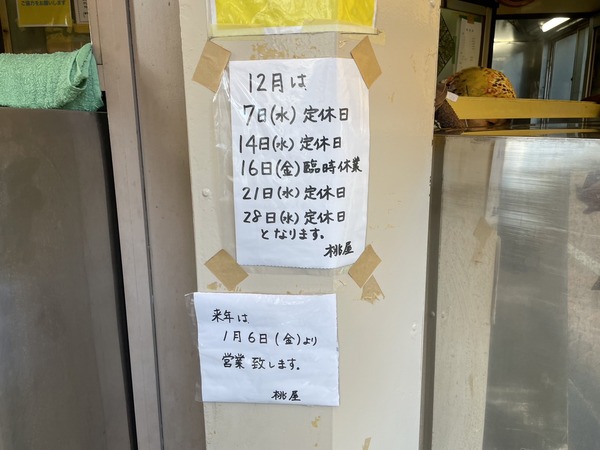 ご協力をお願いします
12月は
7日(水)定休日
14日(水)定休日
16日(金)臨時休業
21日(水)定休日
28日(水)定休日
となります。
桃屋
来年は
1月6日(金)より
営業致します。
桃屋